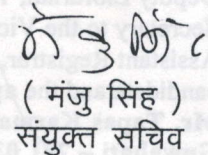 ( मंजु सिंह )
संयुक्त सचिव